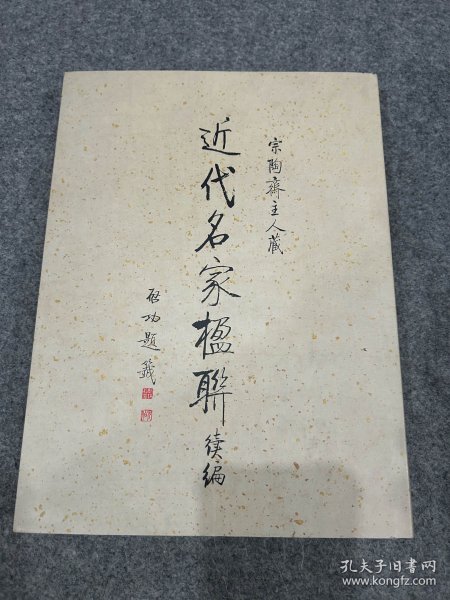 宗陶齋主人藏
近代名家楹聯續編
啓功題籤
孔夫子旧书网
www.kongfz.com